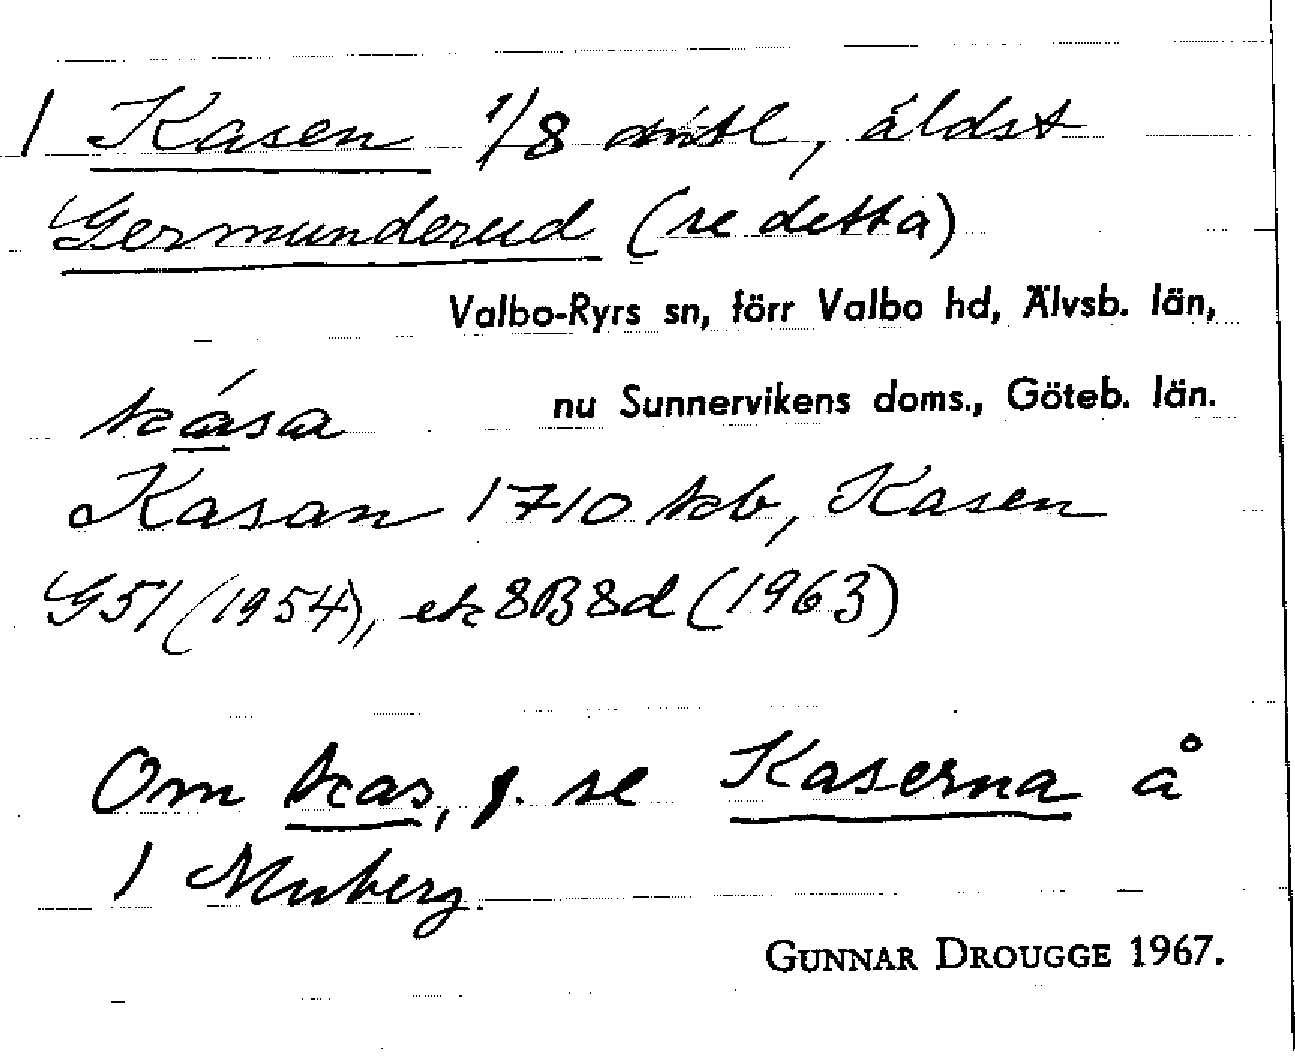 1 Kasen 1/8 mtl, äldst
Germunderud (se detta)
Valbo-Ryrs sn, förr Valbo hd, Älvsb. län,
nu Sunnervikens doms., Göteb. län.
kása
Kasan 1710 kb, Kasen
G51 (1954), ek 8B8d (1963)
Om kas, f. se Kaserna å
1 Muberg.
GUNNAR DROUGGE 1967.